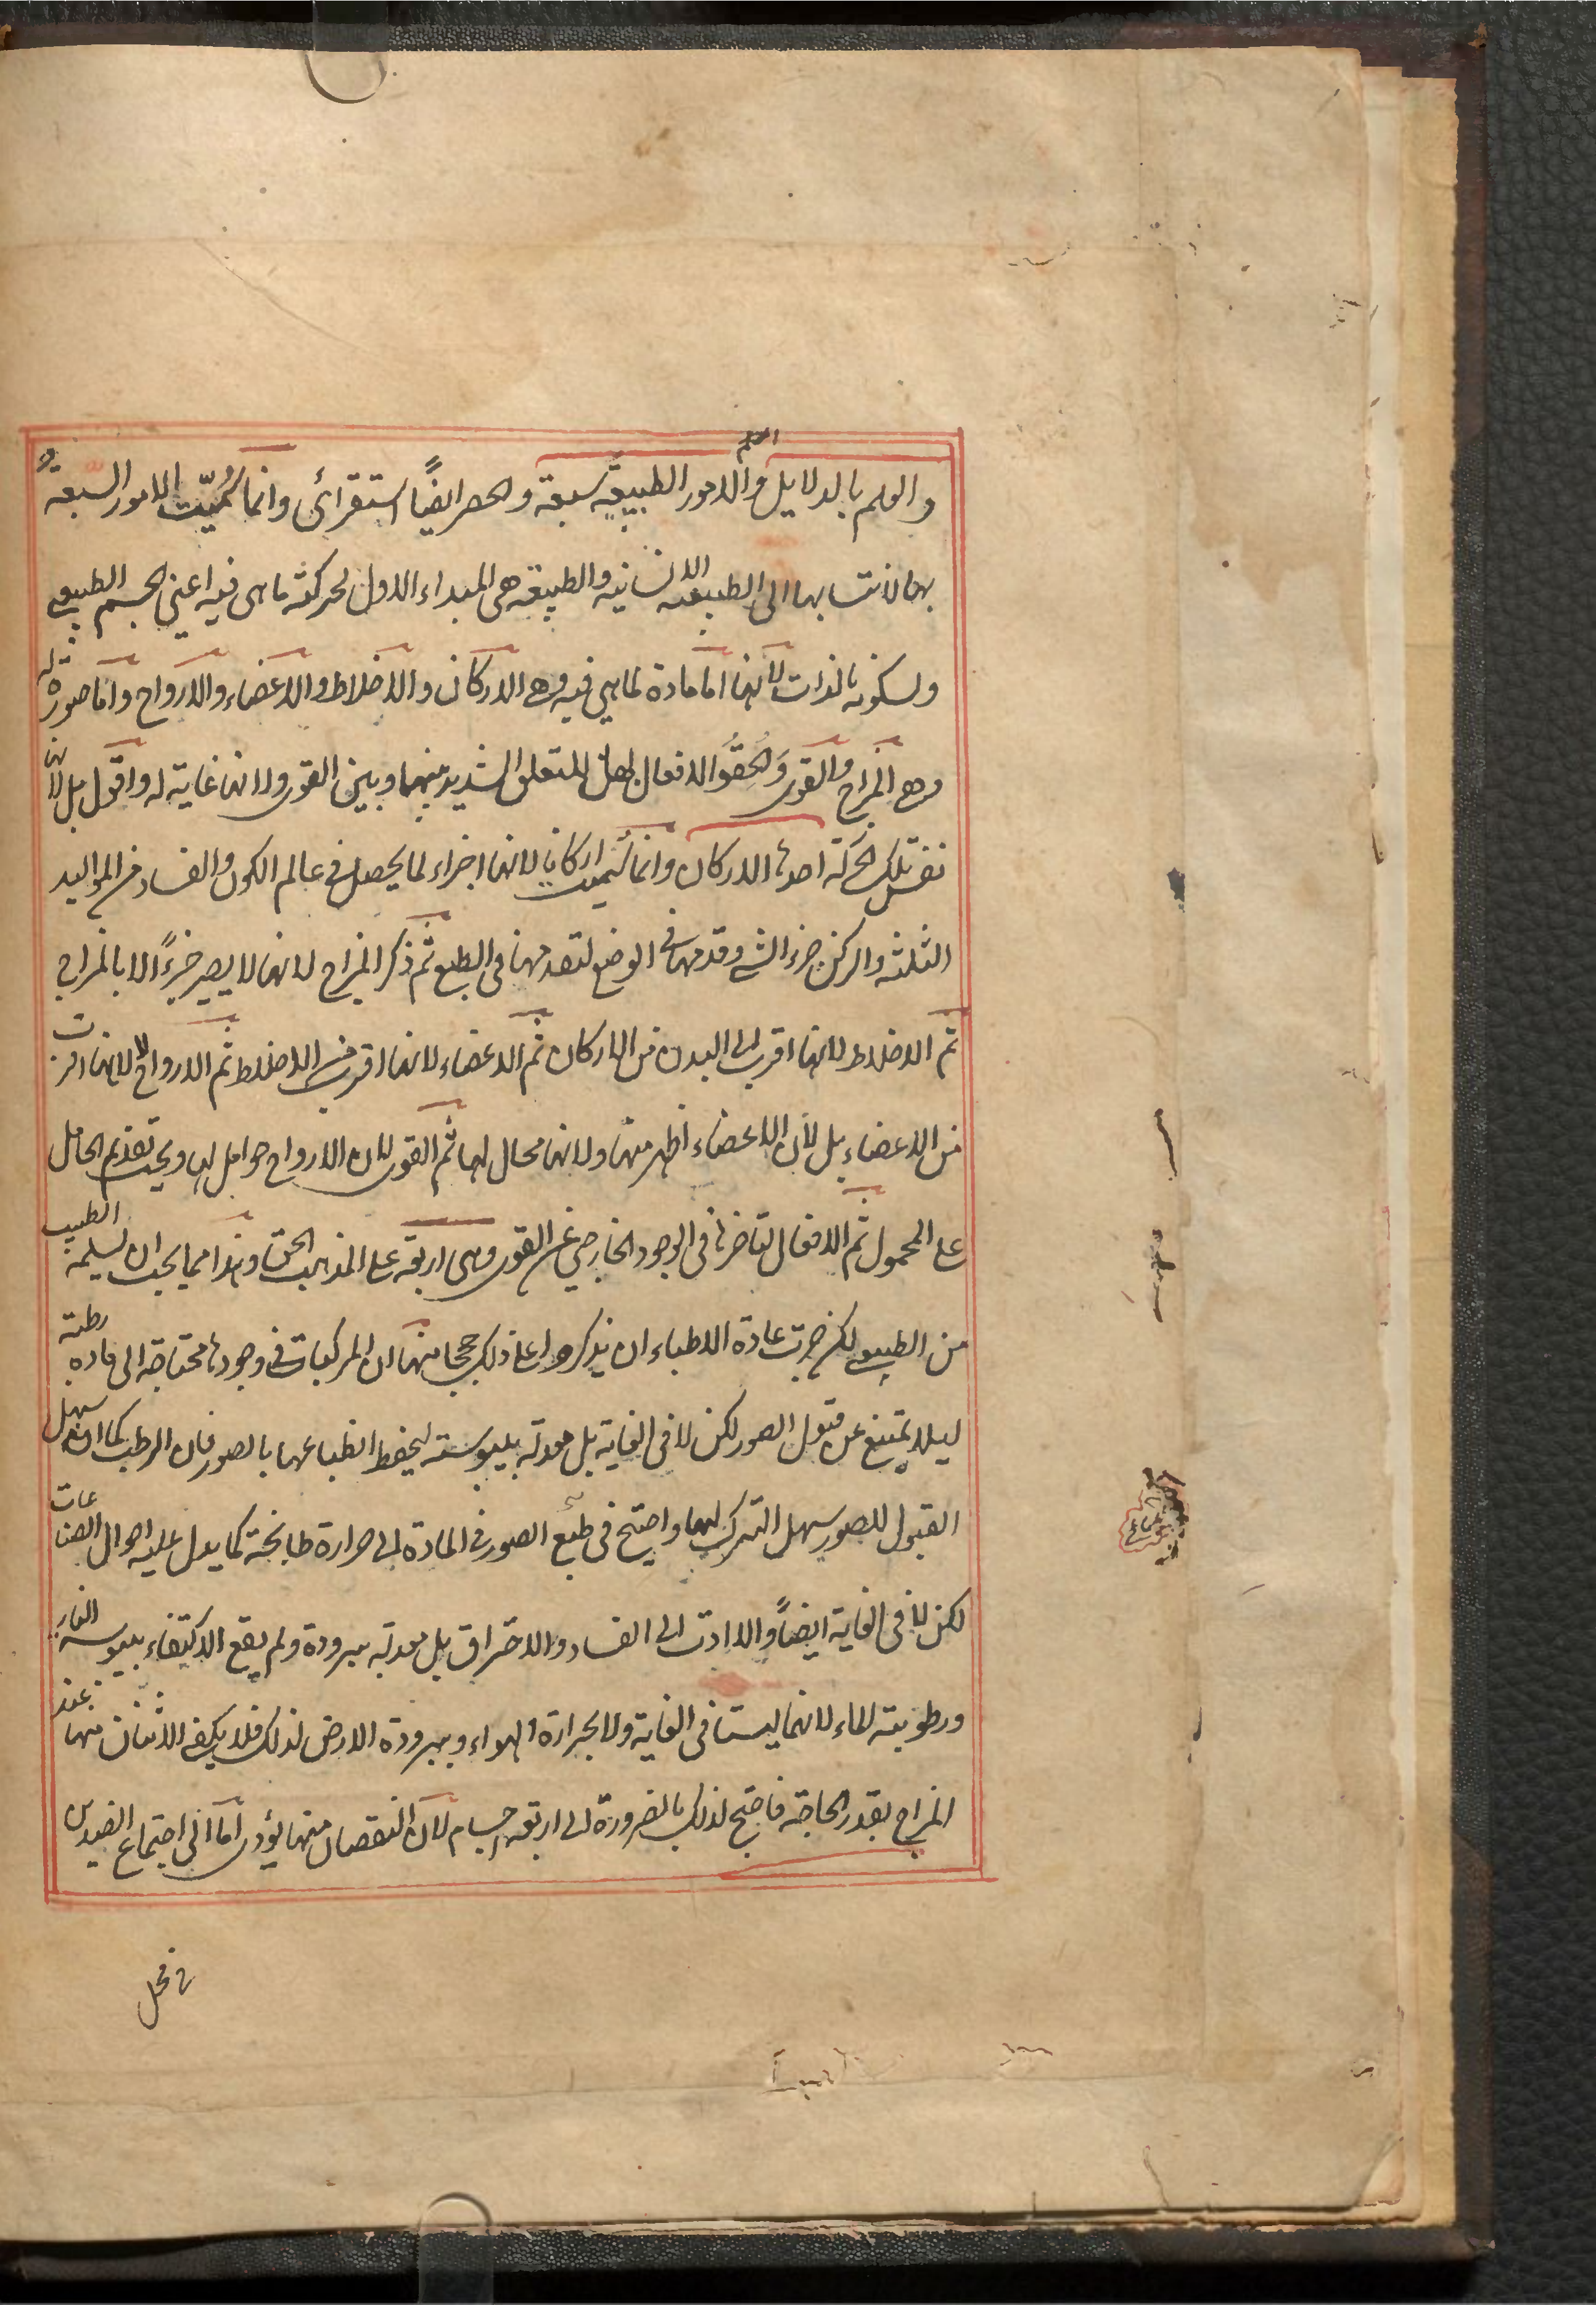 والعلم بالدلايل والامور الطبيعية سبعة والحصر ايضًا استقرائى وانما سُميّت الامور السبعة
بها لانتسابها الى الطبيعه الانسانيه والطبيعة هى المبداء الاول لحركة ماهى فيه اعنى الجسم الطبيعى
ولسكونه بالذات لانها اما مادة لما هي فيه وهى الاركان والاخلاط والاعضاء والارواح واما صورة له
وهى المزاج والقوى وَالحقوا الافعال بها للتعلق الشديد بينهما وبين القوى ولانها غاية له واقول بل لانها
نفس تلك الحركة احدها الاركان وانما سُميت اركانا لانها اجزاء لما يحصل فى عالم الكون والفساد من المواليد
الثلثه والركن جزء الشى وقدمها فى الوضع لتقدمها فى الطبع ثم ذكر المزاج لانها لا يصير جزءً الا بالمزاج
ثم الاخلاط لانها اقرب الى البدن من الاركان ثم الاعضاء لانها اقرب من الاخلاط ثم الارواح لا لانها اقرب
من الاعضاء بل لان الاعضاء اظهر منها ولانها محال لها ثم القوى لان الارواح حوامل لها ويجب تقديم الحامل
على المحمول ثم الافعال لتاخرها فى الوجود الخارجي عن القوى وهى اربعة على المذهب الحق وهذا مما يجب ان يسلمه الطبيب
من الطبيعى لكن جرت عادة الاطباء ان يذكروا على ذلك حججا منها ان المركبات فى وجودها محتاجة الى ماده رطبة
ليلا يمتنع عن قبول الصور لكن لا فى الغاية بل معدلة بيبوسة ليحفظ انطباعها بالصور فان الرطب كما انه سهل
القبول للصور سهل الترك لها واحتيج فى طبع الصور فى المادة الى حرارة طابخة كما يدل عليه احوال الصناعات
لكن لا فى الغاية ايضًا والا ادت الى الفساد والاحتراق بل معدلة ببرودة ولم يقع الاكتفاء بيبوسة النار
ورطوبة الماء لانهما ليستا فى الغاية ولا بحرارة الهواء وببرودة الارض لذلك فلا يكفى الاثنان منها عند
المزاج بقدر الحاجة فاحتيج لذلك بالضرورة الى اربعة اجسام لان النقصان منها يؤدى اما الى اجتماع الضدين
فى محل